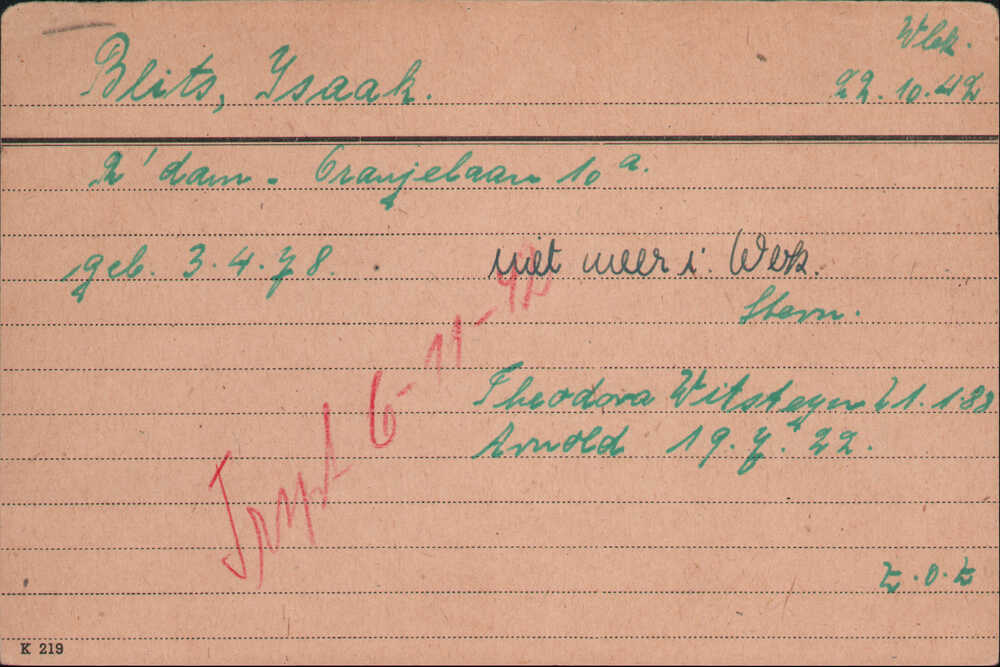 Wbk.
Blits, Ysaak. 22.10.42
R'dam - Oranjelaan 10 a.
geb. 3.4.78. niet meer i. Wbk.
Stern.
Trspt 6-11-42
Theodora Witsteyn 21.1.88
Arnold 19.7.22.
z.o.z
K 219